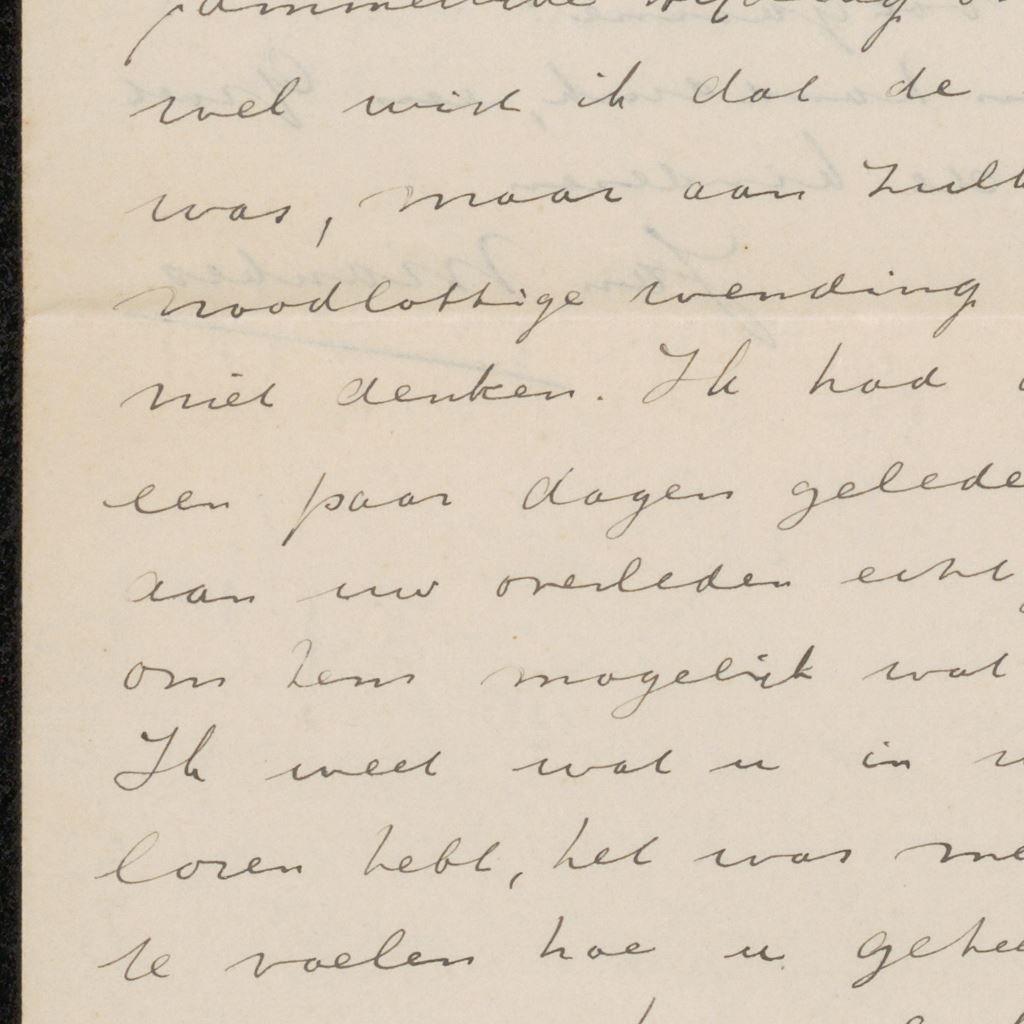 wel wist ik dat de
was, maar aan zulk
noodlottige wending
niet denken. Ik had
een paar dagen gelede
aan uw overleden echtg
om hem mogelijk wat
Ik weet wat u in
loren hebt, het was me
te voelen hoe u gehe